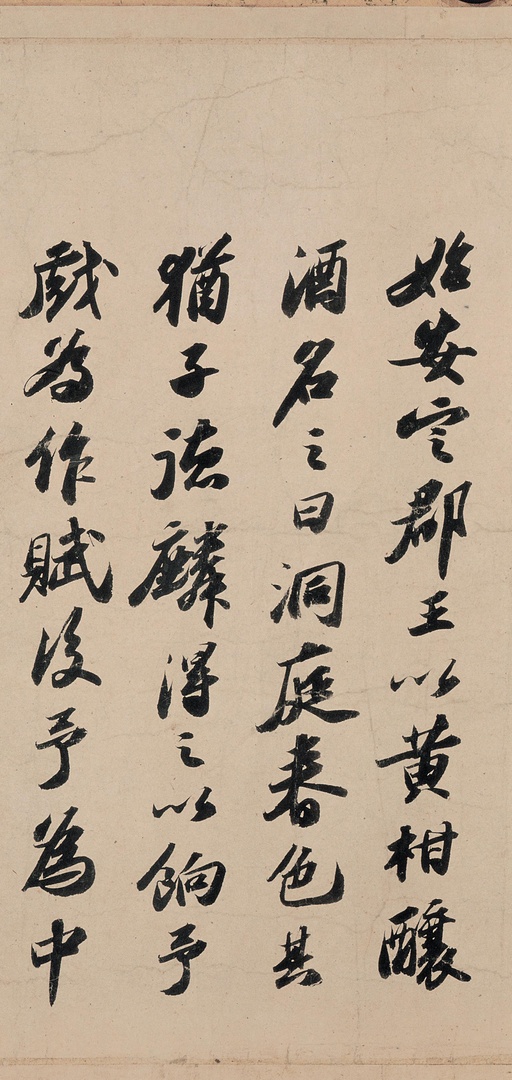 始安定郡王以黄柑釀
酒名之曰洞庭春色其
猶子德麟得之以餉予
戲為作賦後予為中